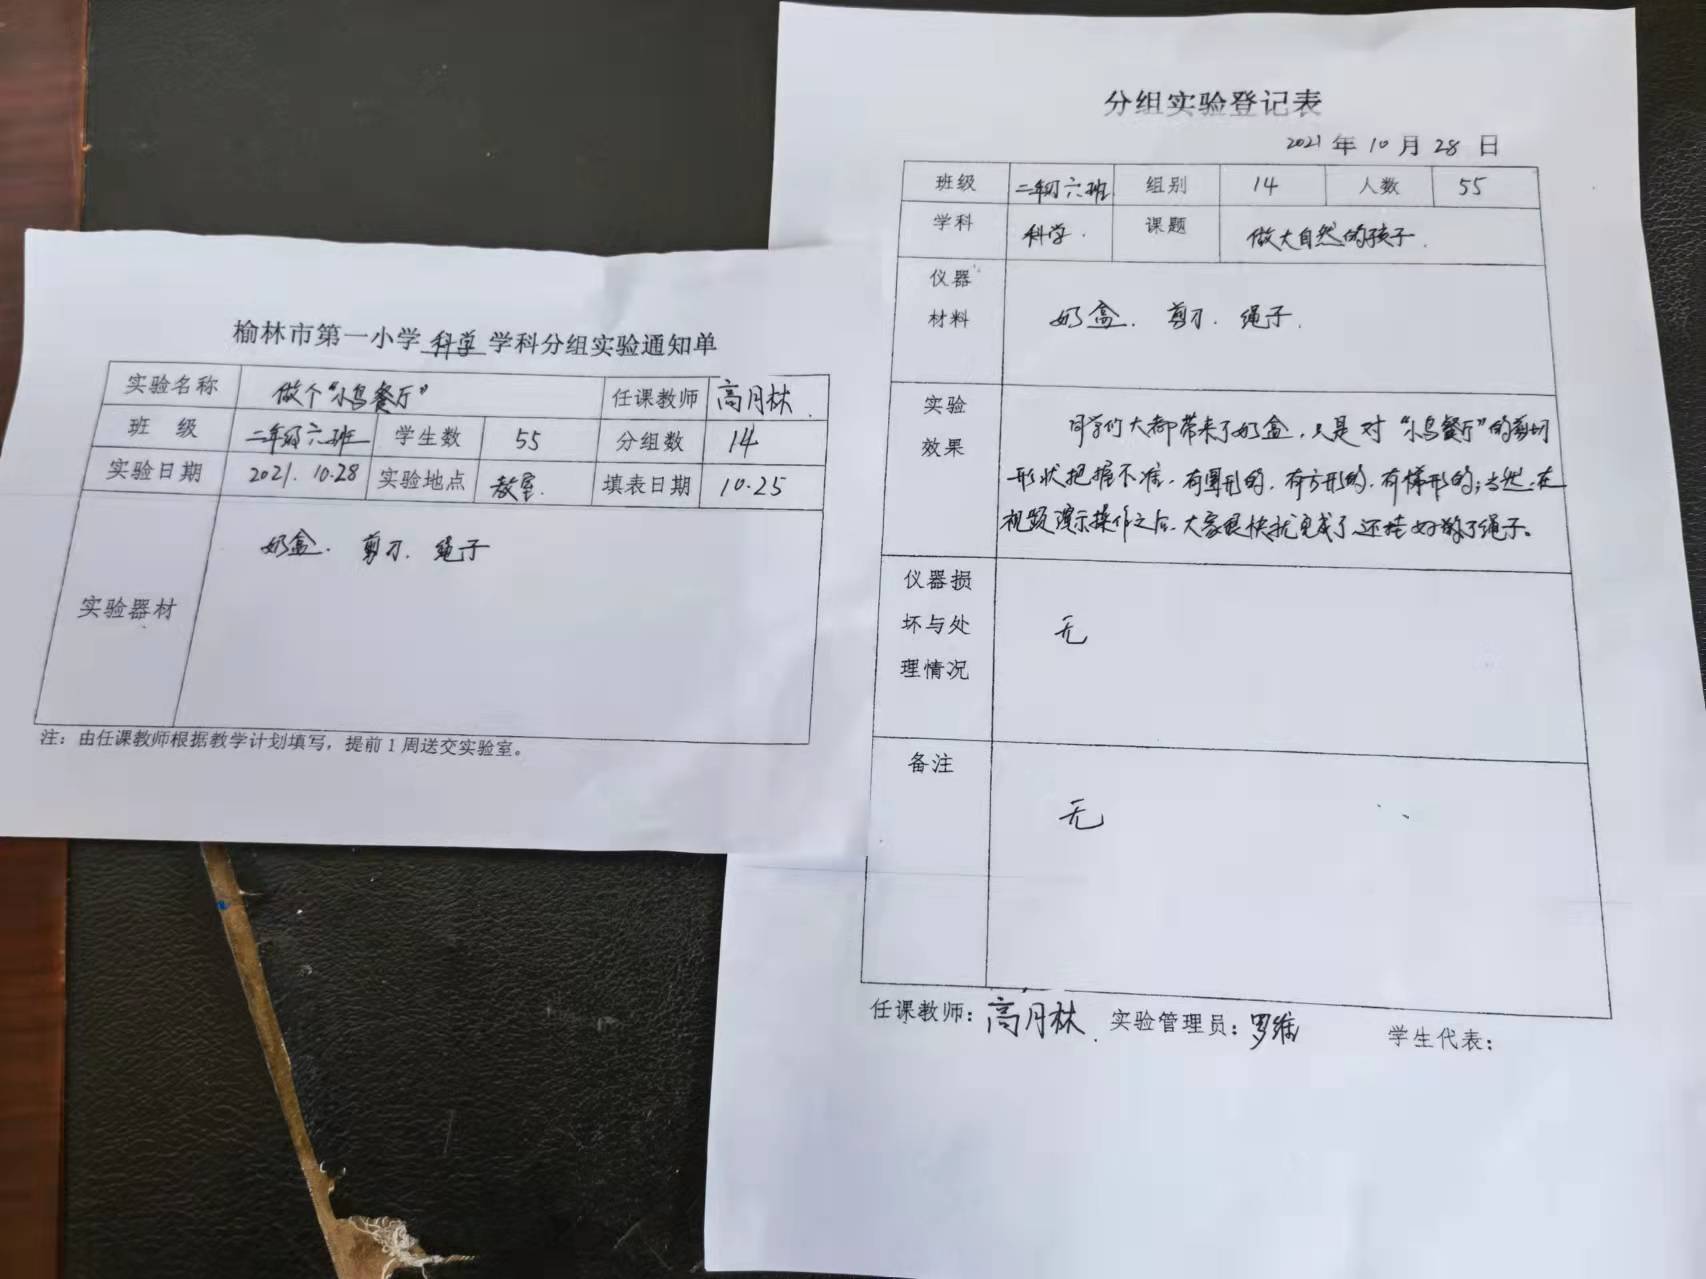 榆林市第一小学 科学 学科分组实验通知单
实验名称 做个“小鸟餐厅” 任课教师 高月林
班 级 二年级六班 学生数 55 分组数 14
实验日期 2021.10.28 实验地点 教室. 填表日期 10.25
实验器材 奶盒. 剪刀. 绳子
注：由任课教师根据教学计划填写，提前1周送交实验室。
分组实验登记表
2021 年 10 月 28 日
班级 二年级六班 组别 14 人数 55
学科 科学. 课题 做大自然的孩子.
仪器
材料
奶盒. 剪刀. 绳子.
实验
效果
同学们大都带来了奶盒，只是对“小鸟餐厅”的剪切
形状把握不准，有圆形的，有方形的，有梯形的；当然，在
视频演示操作之后，大家很快就完成了，还挂好了绳子。
仪器损
坏与处
理情况
无
备注
无
任课教师：高月林. 实验管理员：罗维 学生代表：